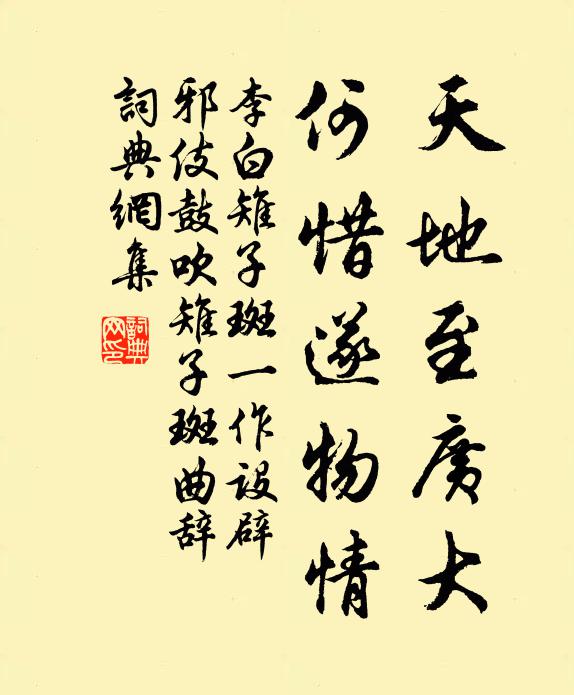 天地至廣大
何惜遂物情
李白雉子斑一作設辟
邪伎鼓吹雉子斑曲辞
詞典網集
詞典网印